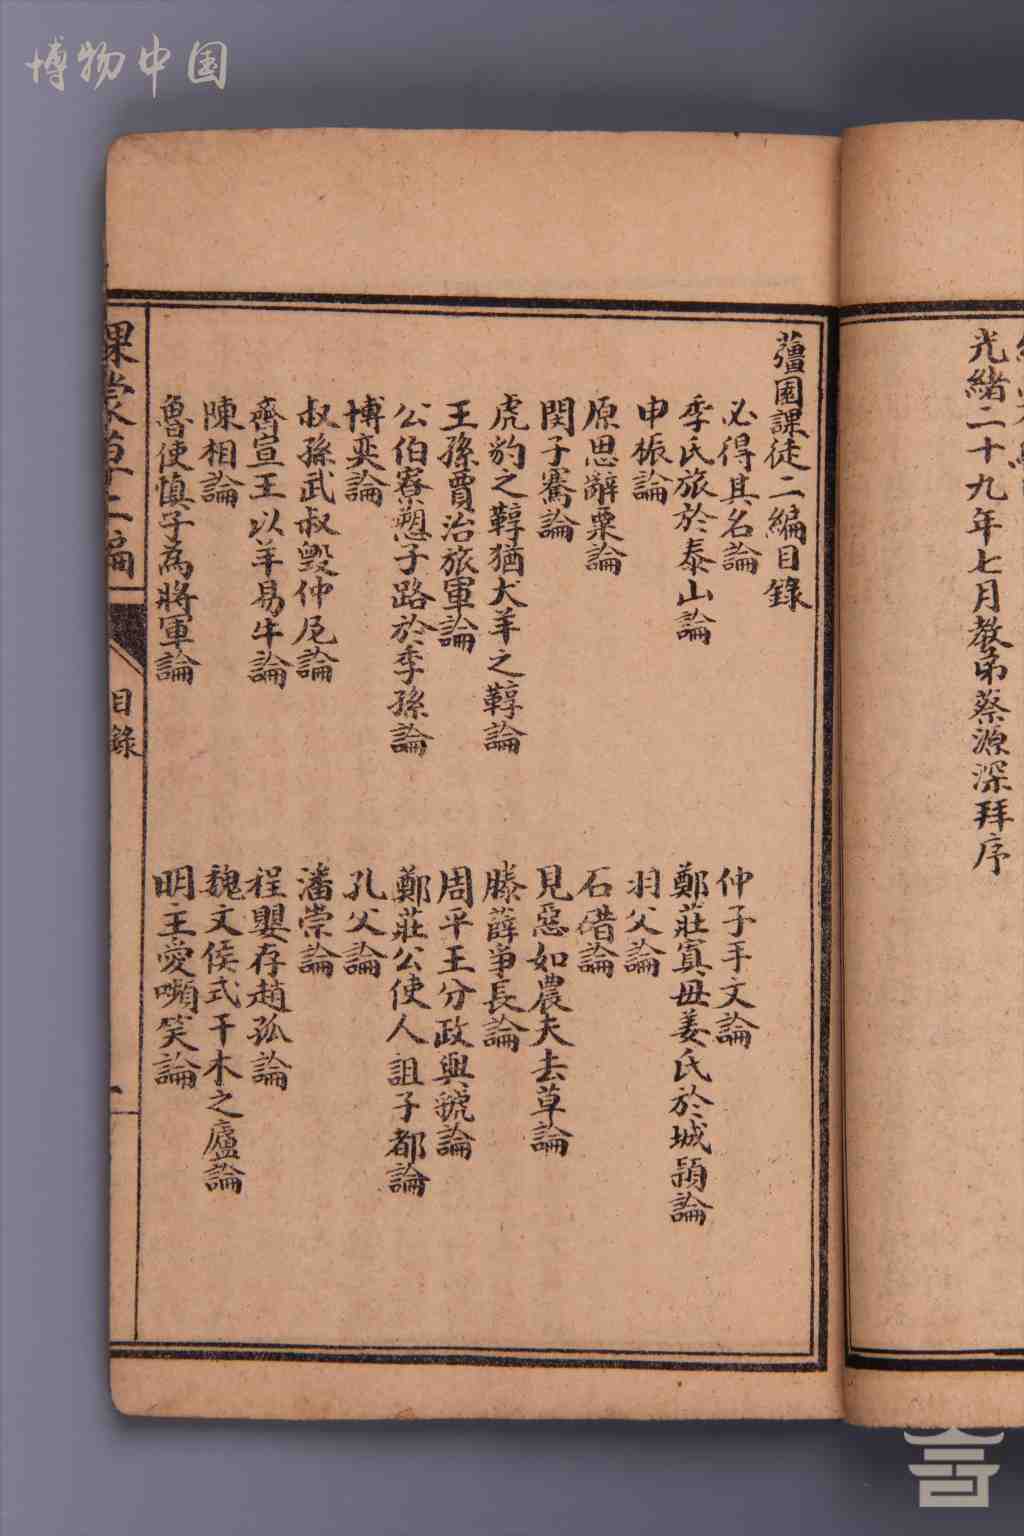 博物中国
光緒二十九年七月教弟蔡源深拜序
薑園課徒二編目錄
必得其名論
季氏旅於泰山論
申棖論
原思辭粟論
閔子騫論
虎豹之鞟猶犬羊之鞟論
王孫賈治旅軍論
公伯寮愬子路於季孫論
博奕論
叔孫武叔毀仲尼論
齊宣王以羊易牛論
陳相論
魯使慎子為將軍論
仲子手文論
鄭莊寘母姜氏於城潁論
羽父論
石碏論
見惡如農夫去草論
滕薛爭長論
周平王分政與虢論
鄭莊公使人詛子都論
孔父論
潘崇論
程嬰存趙孤論
魏文侯式干木之廬論
明主愛嚬笑論
課蒙草二編
目錄
一